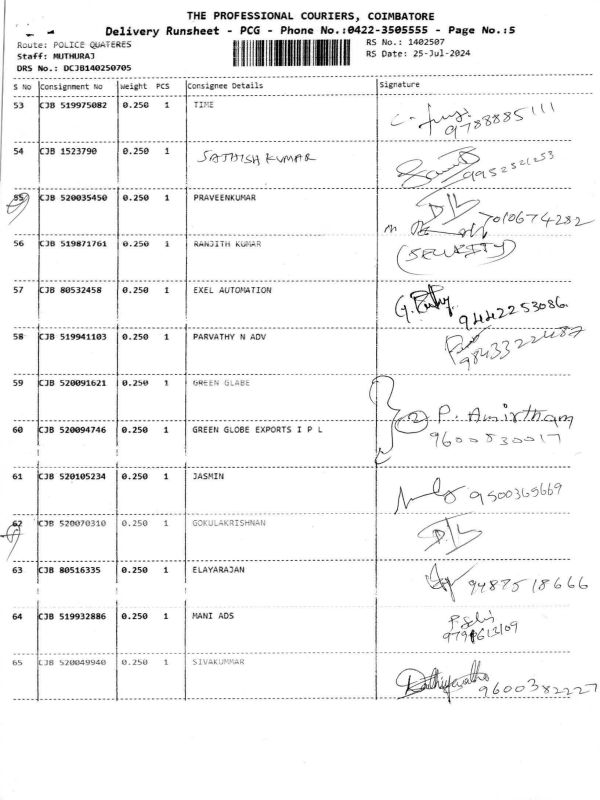 THE PROFESSIONAL COURIERS, COIMBATORE
Delivery Runsheet - PCG - Phone No.:0422-3505555 - Page No.:5
Route: POLICE QUATERES
RS No.: 1402507
Staff: MUTHURAJ
RS Date: 25-Jul-2024
DRS No.: DCJB140250705
S No Consignment No Weight PCS Consignee Details Signature
53 CJB 519975082 0.250 1 TIME
9788885111
54 CJB 1523790 0.250 1 SATHISH KUMAR
9952521253
55 CJB 520035450 0.250 1 PRAVEENKUMAR D/L
7010674282
56 CJB 519871761 0.250 1 RANJITH KUMAR (SECURITY)
57 CJB 80532458 0.250 1 EXEL AUTOMATION
9442253086.
58 CJB 519941103 0.250 1 PARVATHY N ADV
9843322487
59 CJB 520091621 0.250 1 GREEN GLABE
60 CJB 520094746 0.250 1 GREEN GLOBE EXPORTS I P L (2) P. Amirtham
9600830017
61 CJB 520105234 0.250 1 JASMIN
9500365669
62 CJB 520070310 0.250 1 GOKULAKRISHNAN D/L
63 CJB 80516335 0.250 1 ELAYARAJAN 9487518666
64 CJB 519932886 0.250 1 MANI ADS
65 CJB 520049940 0.250 1 SIVAKUMMAR
9600382227